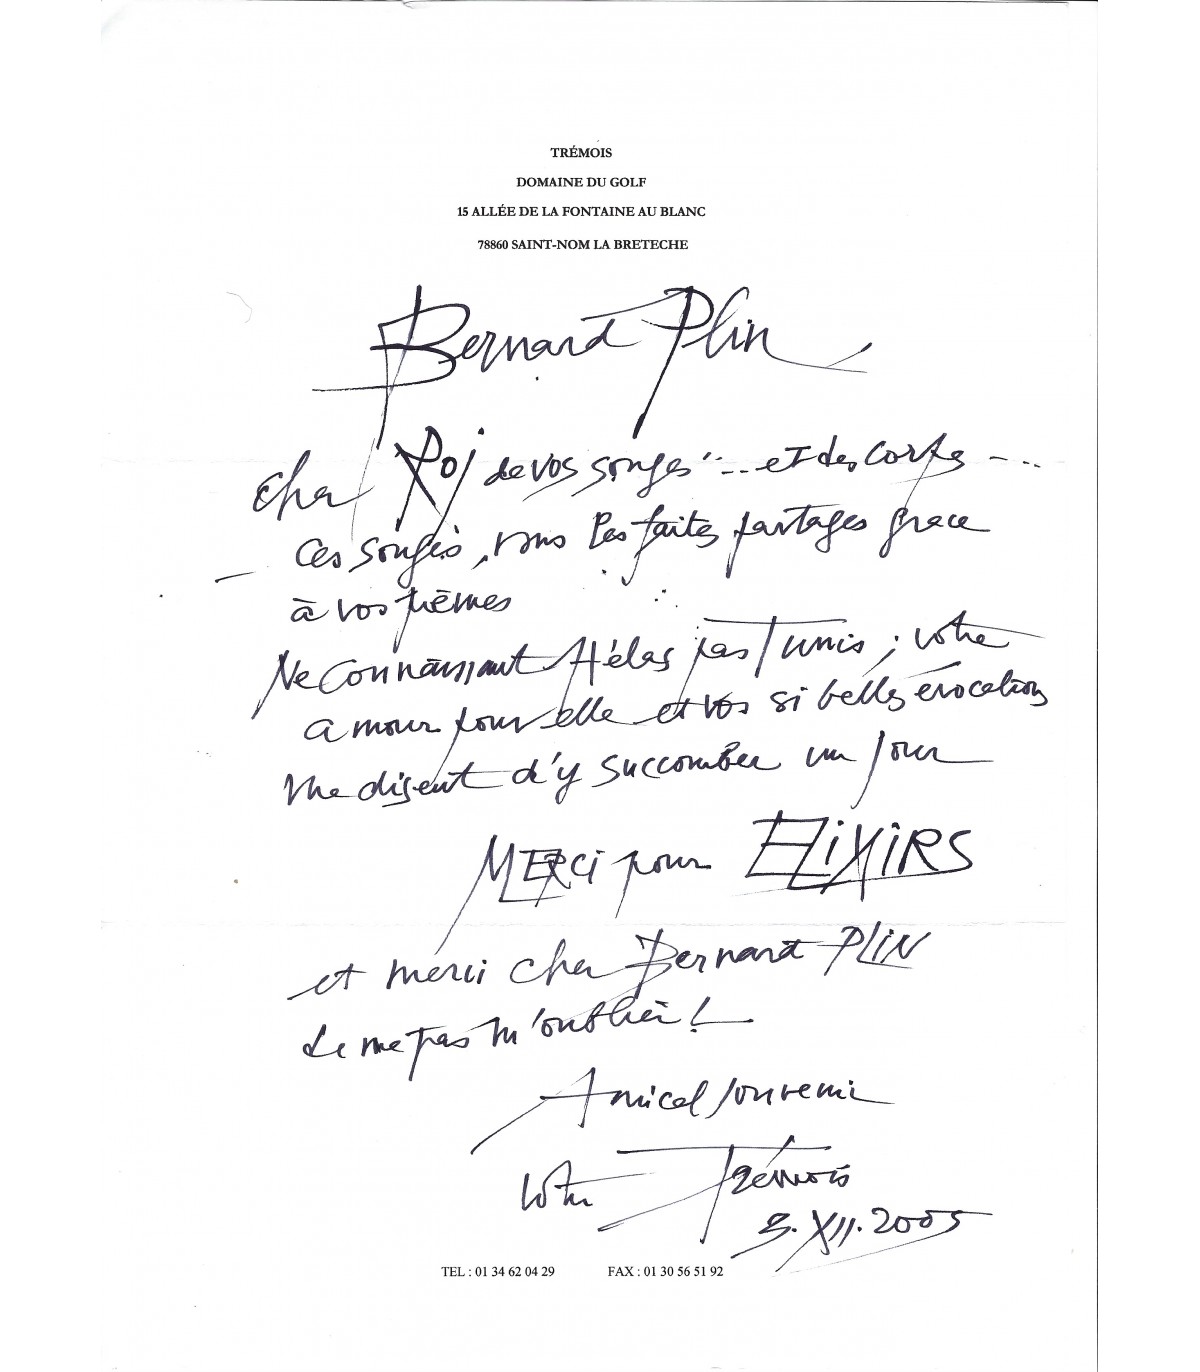 TRÉMOIS
DOMAINE DU GOLF
15 ALLÉE DE LA FONTAINE AU BLANC
78860 SAINT-NOM LA BRETECHE
Bernard Plin
Cher Roi de vos songes" ... et des corps ...
Ces songes, vous les faites partager grace
à vos poèmes
Ne connaissant Hélas pas Tunis ; votre
amour pour elle et vos si belles évocations
me disent d'y succomber un jour
MERCI pour ELiXiRS
et merci cher Bernard PLIN
de ne pas m'oublier !
Amical souvenir
Votre Trémois
3.XII.2005
TEL : 01 34 62 04 29 FAX : 01 30 56 51 92